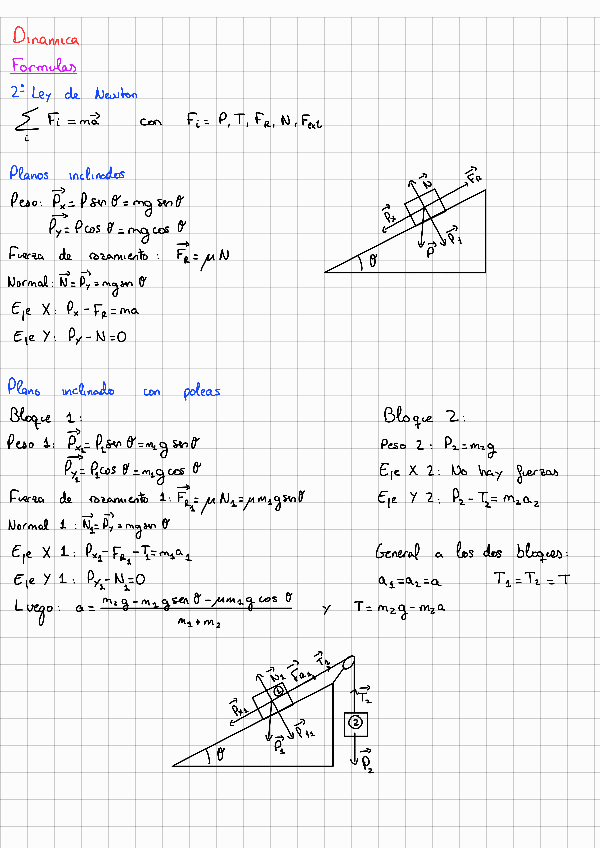 Dinamica
Formulas
2ª Ley de Newton
∑ᵢ Fᵢ = ma⃗ con Fᵢ = P, T, F_R, N, F_ext
Planos inclinados
Peso: P⃗_x = P sen θ = mg sen θ
P⃗_y = P cos θ = mg cos θ
Fuerza de rozamiento: F⃗_R = μN
Normal: N⃗ = P⃗_y = mg sen θ
Eje X: P_x - F_R = ma
Eje Y: P_y - N = 0
N⃗
F⃗_R
P⃗_x
P⃗
P⃗_1
θ
Plano inclinado con poleas
Bloque 1:
Peso 1: P⃗_x₁ = P₁ sen θ = m₁g sen θ
P⃗_y₁ = P₁ cos θ = m₁g cos θ
Fuerza de rozamiento 1: F⃗_R₁ = μN₁ = μm₁g sen θ
Normal 1: N⃗₁ = P⃗_y = mg sen θ
Eje X 1: P_x₁ - F_R₁ - T₁ = m₁a₁
Eje Y 1: P_y₁ - N₁ = 0
Bloque 2:
Peso 2: P₂ = m₂g
Eje X 2: No hay fuerzas
Eje Y 2: P₂ - T₂ = m₂a₂
General a los dos bloques:
a₁ = a₂ = a T₁ = T₂ = T
Luego: a = (m₂g - m₁g sen θ - μm₁g cos θ) / (m₁ + m₂) y T = m₂g - m₂a
N⃗₁
F⃗_R₁
T⃗₁
①
P⃗_x₁
P⃗₁
θ
T⃗₂
②
P⃗₂